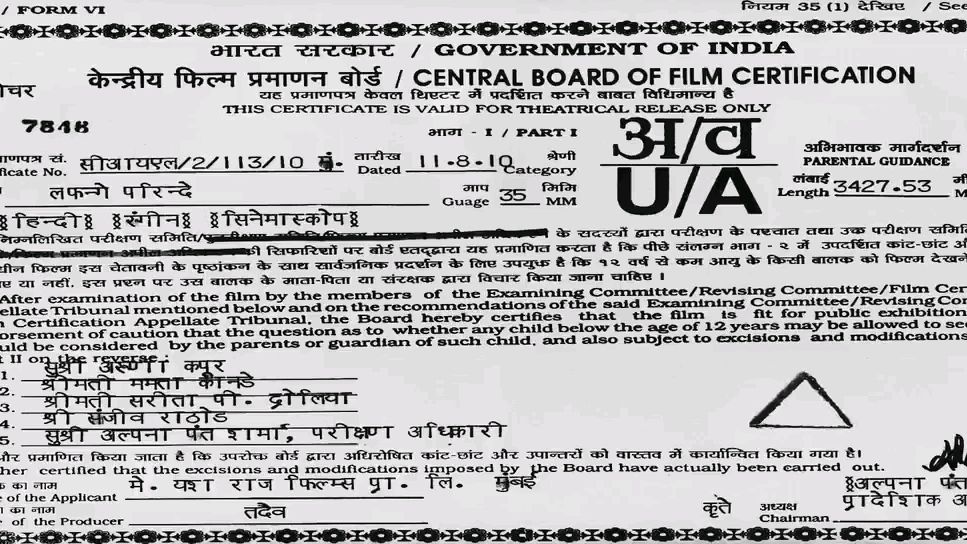 / FORM VI नियम 35 (1) देखिए / See
भारत सरकार / GOVERNMENT OF INDIA
केन्द्रीय फिल्म प्रमाणन बोर्ड / CENTRAL BOARD OF FILM CERTIFICATION
यह प्रमाणपत्र केवल थिएटर में प्रदर्शित करने बाबत विधिमान्य है
THIS CERTIFICATE IS VALID FOR THEATRICAL RELEASE ONLY
7848
भाग - I / PART I
अ/व
U/A
अभिभावक मार्गदर्शन
PARENTAL GUIDANCE
सीआयएल/2/113/10 मुं. तारीख 11.8.10 श्रेणी
Dated Category
लंबाई 3427.53
Length
लफन्गे परिन्दे माप 35 मिमि
Guage MM
हिन्दी रंगीन सिनेमास्कोप
निम्नलिखित परीक्षण समिति/ के सदस्यों द्वारा परीक्षण के पश्चात तथा उक्त परीक्षण समिति
की सिफारिशों पर बोर्ड एतद्द्वारा यह प्रमाणित करता है कि पीछे संलग्न भाग - २ में उपदर्शित कांट-छांट
फिल्म इस चेतावनी के पृष्ठांकन के साथ सार्वजनिक प्रदर्शन के लिए उपयुक्त है कि १२ वर्ष से कम आयु के किसी बालक को फिल्म देखने
या नहीं, इस प्रश्न पर उस बालक के माता-पिता या संरक्षक द्वारा विचार किया जाना चाहिए ।
After examination of the film by the members of the Examining Committee/Revising Committee/Film Cer
ellate Tribunal mentioned below and on the recommendations of the said Examining Committee/Revising Com
n Certification Appellate Tribunal, the Board hereby certifies that the film is fit for public exhibition
orsement of caution that the question as to whether any child below the age of 12 years may be allowed to see
uld be considered by the parents or guardian of such child, and also subject to excisions and modifications
t II on the reverse :
1. सुश्री अरुणा कपूर
2. श्रीमती ममता कानडे
3. श्रीमती सरीता पी. द्रोलिया
4. श्री संजीव राठोड
5. सुश्री अल्पना पंत शर्मा, परीक्षण अधिकारी
और प्रमाणित किया जाता है कि उपरोक्त बोर्ड द्वारा अधिरोपित कांट-छांट और उपान्तरों को वास्तव में कार्यान्वित किया गया है।
her certified that the excisions and modifications imposed by the Board have actually been carried out.
का नाम मे. यश राज फिल्म्स प्रा. लि. मुंबई
e of the Applicant
का नाम तदैव
of the Producer
कृते अध्यक्ष
Chairman
अल्पना पंत
प्रादेशिक अ